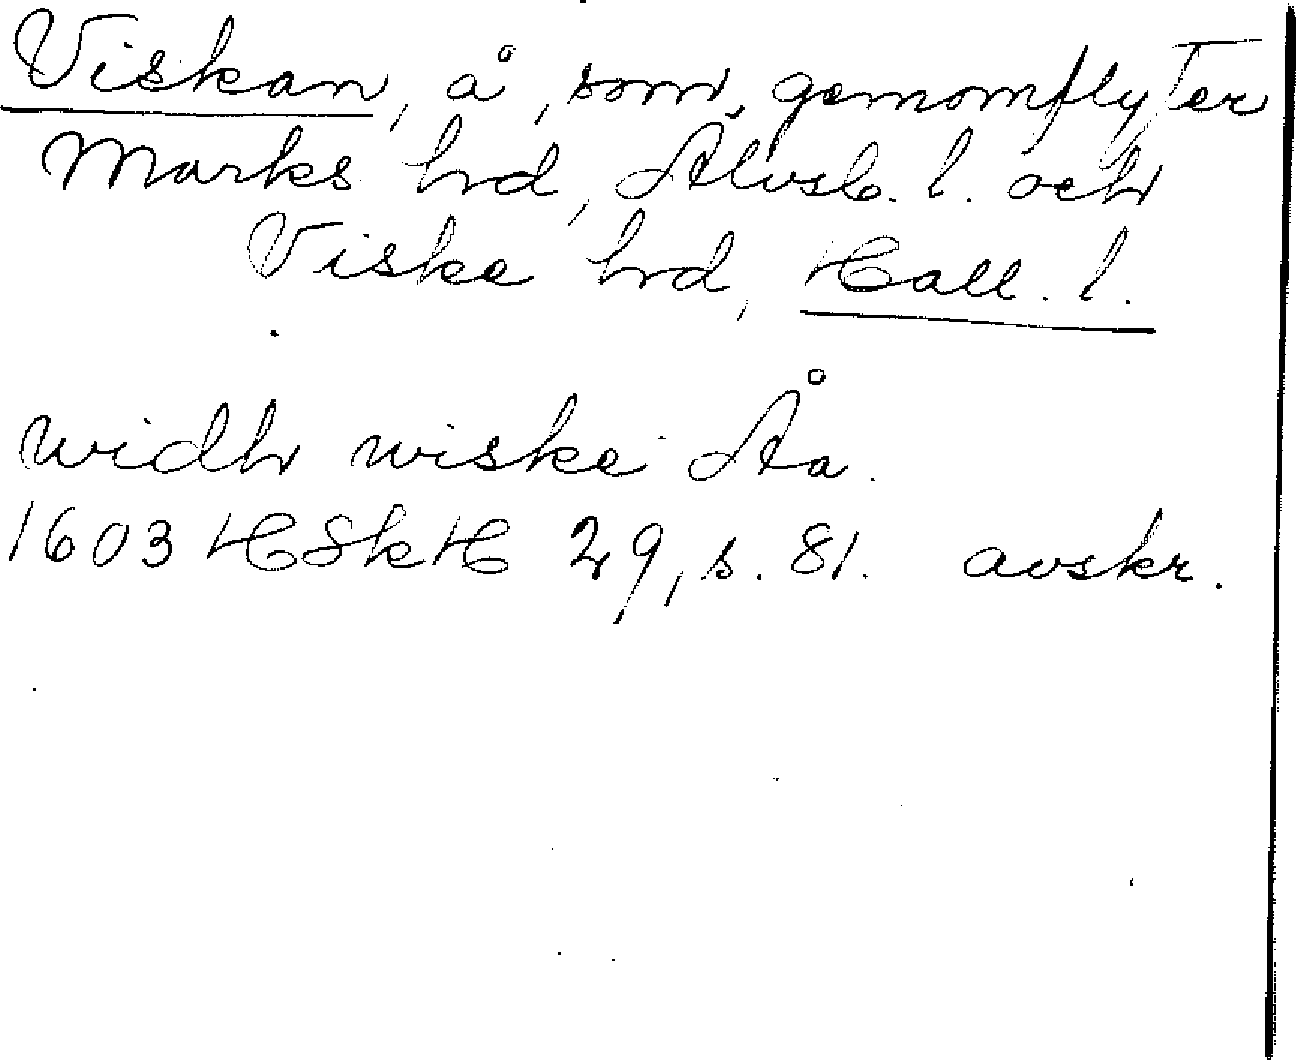 Viskan, å, som genomflyter
Marks hrd, Älvsb. l. och
Viske hrd, Hall. l.
widh wiske Åa.
1603 HSkH 29, s. 81. avskr.